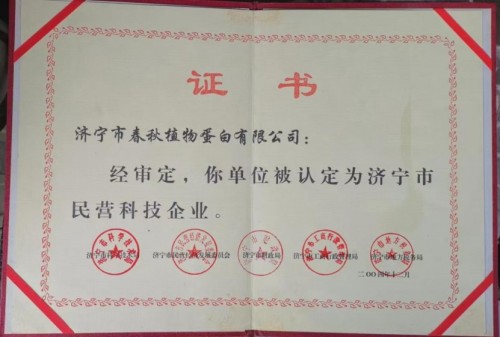 证书
济宁市春秋植物蛋白有限公司：
经审定，你单位被认定为济宁市
民营科技企业。
济宁市民营经济发展委员会 济宁市财政局 济宁市工商行政管理局 济宁市地方税务局
二〇〇四年十二月